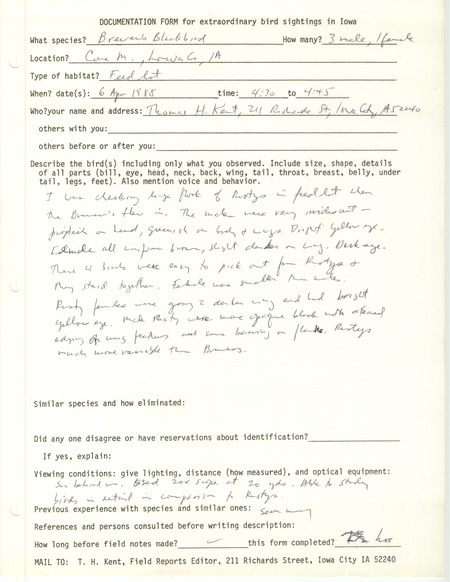 DOCUMENTATION FORM for extraordinary bird sightings in Iowa
What species? Brewer's Blackbird How many? 3 male, 1 female
Location? Cone M., Louisa Co, IA
Type of habitat? Feed lot
When? date(s): 6 Apr 1988 time: 4:30 to 4:45
Who? your name and address: Thomas H. Kent, 211 Richards St, Iowa City, IA 52240
others with you:
others before or after you:
Describe the bird(s) including only what you observed. Include size, shape, details
of all parts (bill, eye, head, neck, back, wing, tail, throat, breast, belly, under
tail, legs, feet). Also mention voice and behavior.
I was checking large flock of Rustys in feedlot when
the Brewer's flew in. The males were very iridescent -
purplish on head, greenish on body & wings. Bright yellow eye.
Female all uniform brown, slight darker on wing. Dark eye.
These 4 birds were easy to pick out from Rustys &
they stayed together. Female was smaller than males.
Rusty females were gray & darker wing and had bright
yellow eye. Male Rusty were more opaque black with
edging of wing feathers and some barring on flanks. Rustys
much more variable than Brewers.
Similar species and how eliminated:
Did any one disagree or have reservations about identification?
If yes, explain:
Viewing conditions: give lighting, distance (how measured), and optical equipment:
Sun behind us. Used 20x scope at 20 yds. Able to study
birds in detail in comparison to Rustys.
Previous experience with species and similar ones: seen many
References and persons consulted before writing description:
How long before field notes made? this form completed? hrs
MAIL TO: T. H. Kent, Field Reports Editor, 211 Richards Street, Iowa City IA 52240